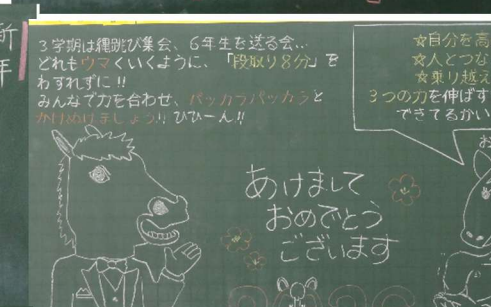 新
年
3学期は縄跳び集会、6年生を送る会…
どれもウマくいくように、「段取り8分」を
わすれずに!!
みんなで力を合わせ、パッカラパッカラと
かけぬけましょう!! ひひーん!!
☆自分を高
☆人とつな
☆乗り越え
3つの力を伸ばす
できてるかい
お
あけまして
おめでとう
ございます